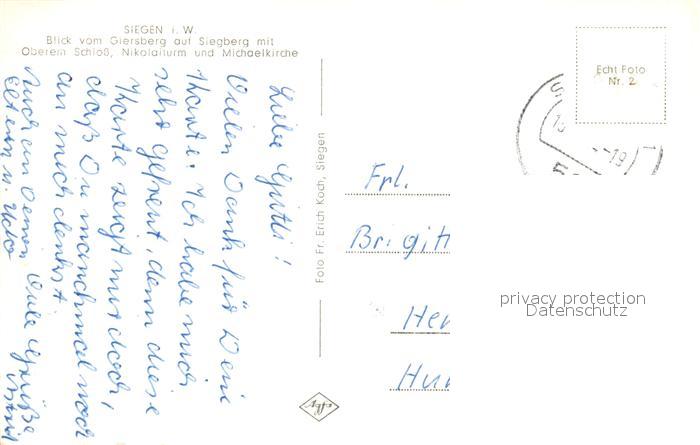 SIEGEN i. W.
Blick vom Giersberg auf Siegberg mit
Oberem Schloß, Nikolaiturm und Michaelkirche
Liebe Gitti!
Vielen Dank für Deine
Karte. Ich habe mich
sehr gefreut, denn diese
Karte zeigt mir doch,
daß Du manchmal noch
an mich denkst.
Auch an Deinen
Eltern u. Udo
Viele Grüße
Foto Fr. Erich Koch, Siegen
Agfa
Echt Foto
Nr. 2
Frl.
Brigitt
Her
Hun
privacy protection
Datenschutz